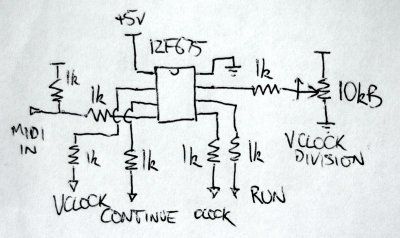 +5V
12F675
1k
1k
1k
10kB
MIDI
IN
1k
1k
1k
1k
VCLOCK
DIVISION
VCLOCK
CONTINUE
CLOCK
RUN